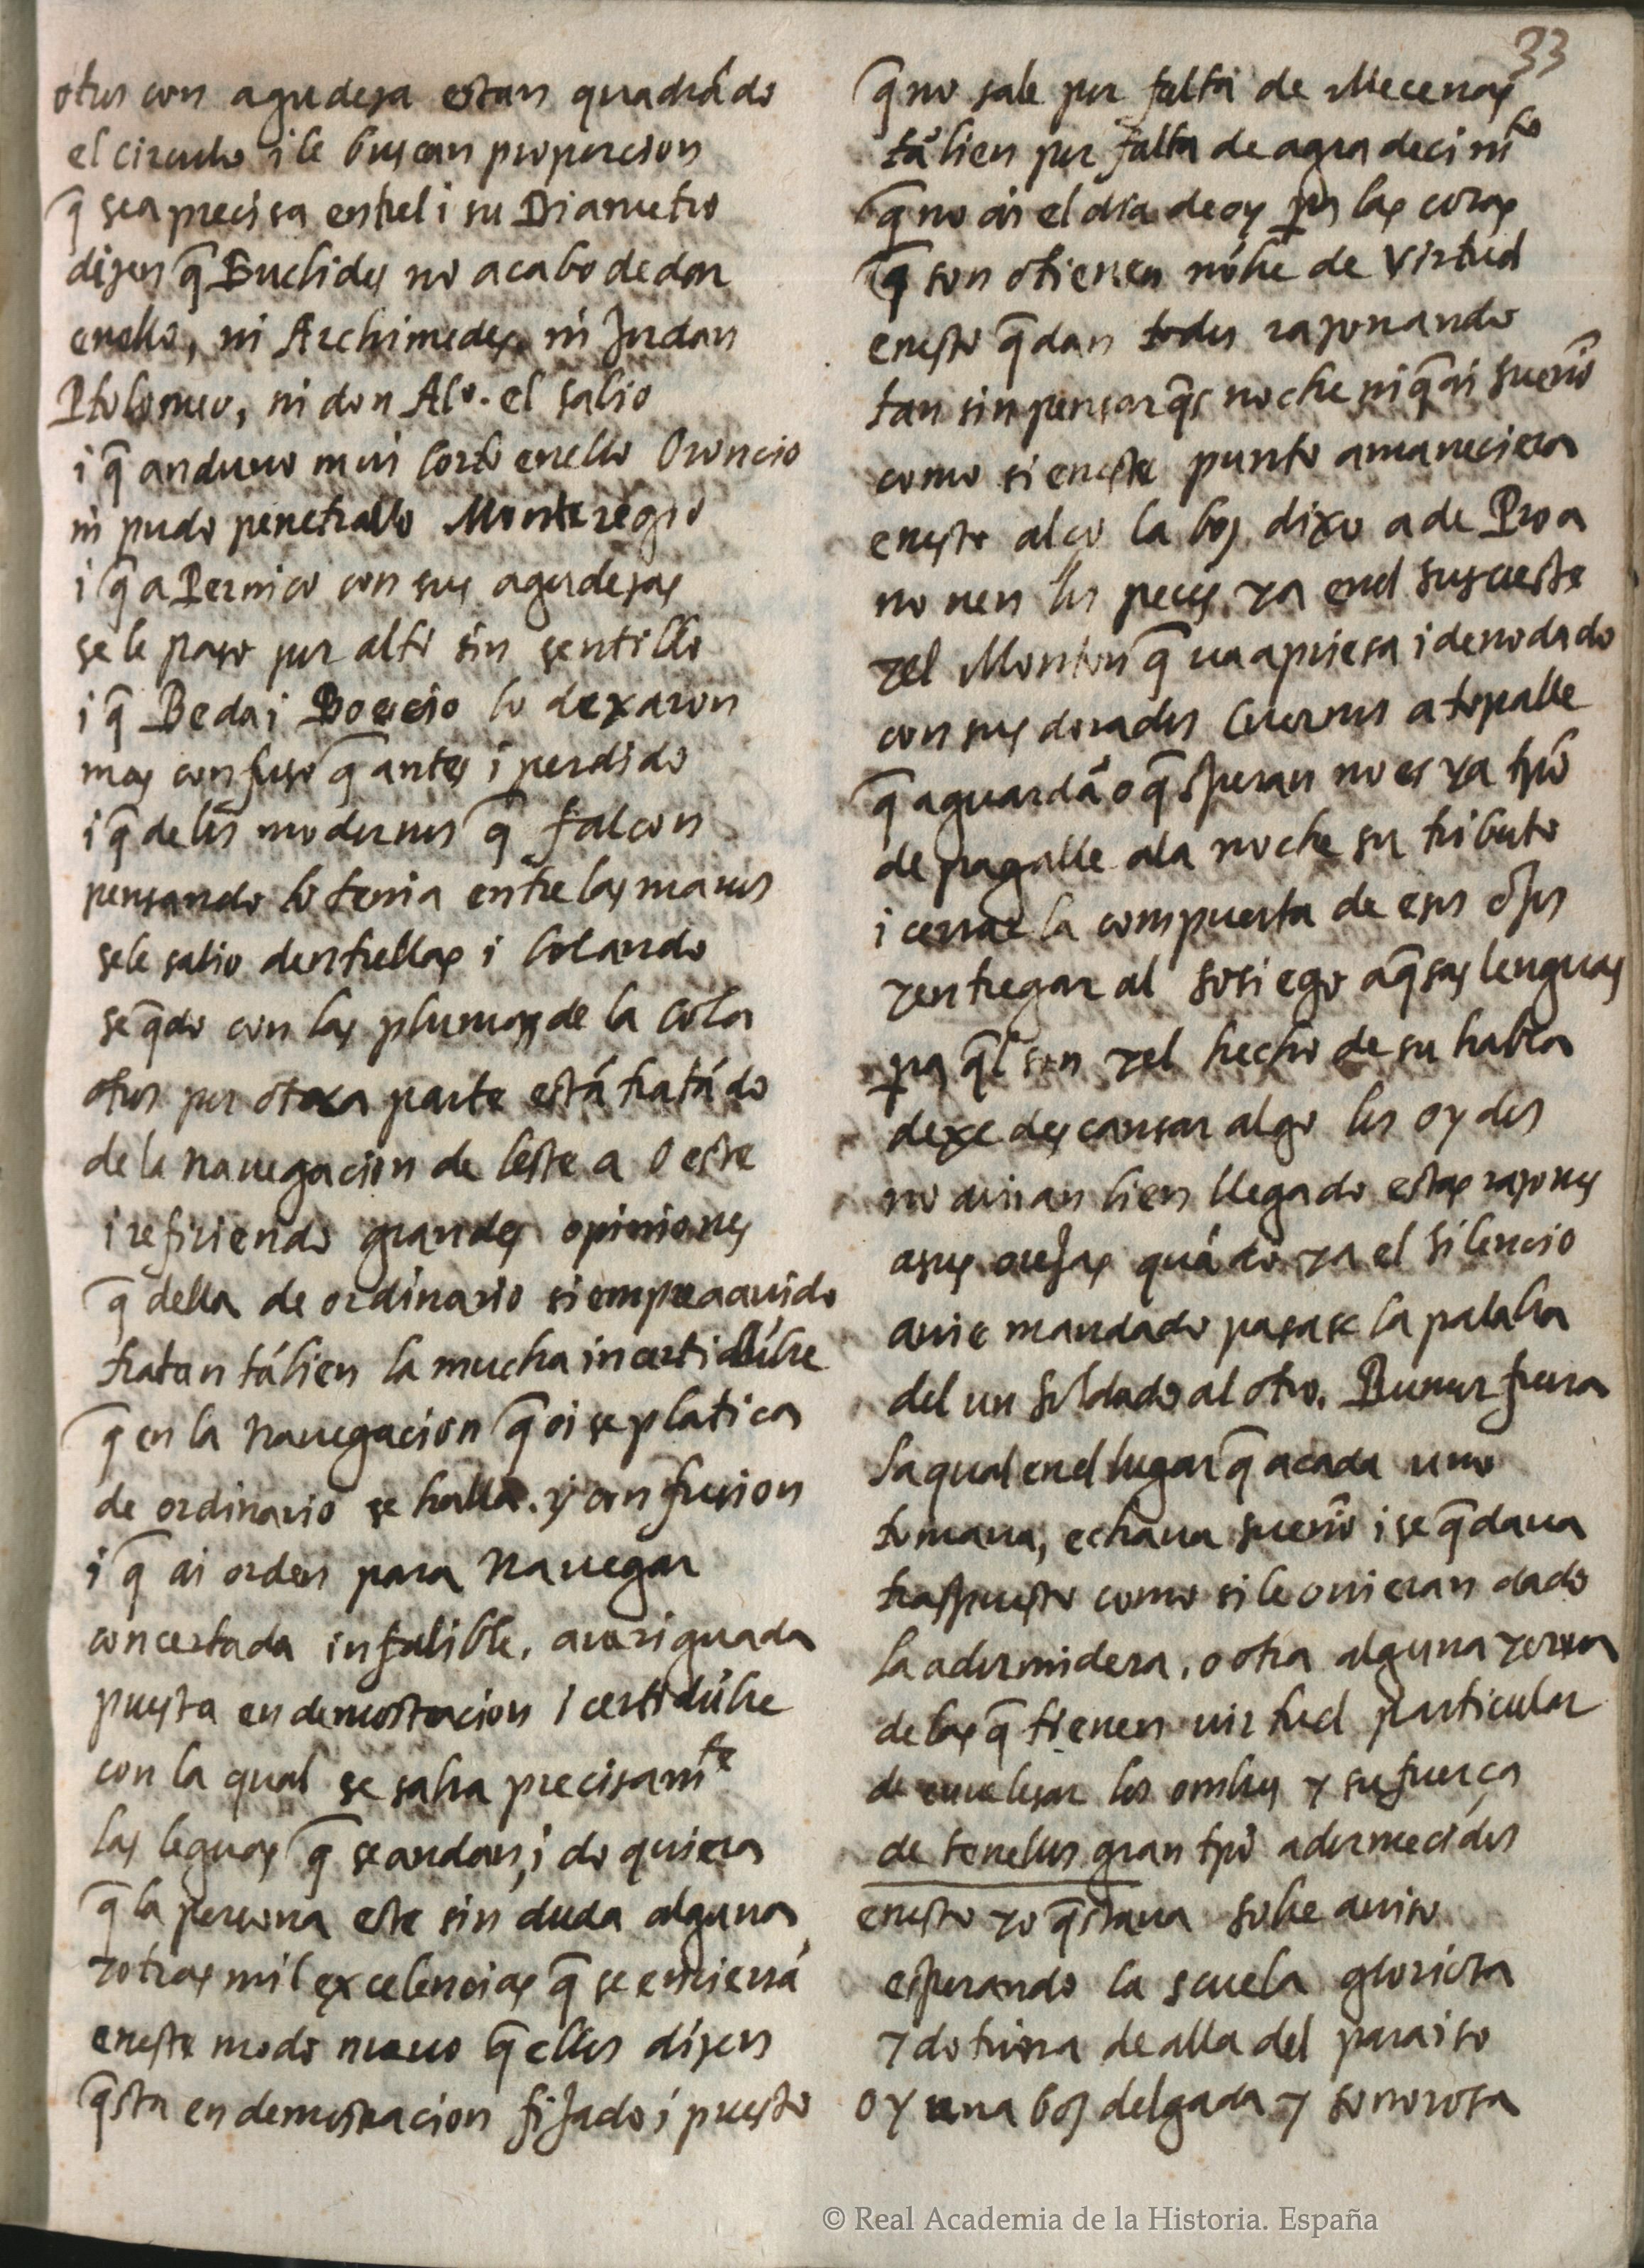 33
otros con agudeza estan quadrādo
el circulo i le buscan proporcion
q̄ sea precisa entrel i su Diametro
dizen q̄ Euclides no acabo de dar
enello, ni Archimedes, ni Jordan
Ptolomeo, ni don Alº. el sabio
i q̄ anduuo mui corto enello Oroncio
ni pudo penetrallo Monteregio
i q̄ a Pernico con sus agudezas
se le paso por alto sin sentillo
i q̄ Beda i Boecio lo dexaron
mas confuso q̄ antes i perdido
i q̄ de los modernos q̄ falcon
pensando lo tenia entre las manos
sele salio dentrellas i bolando
se q̄do con las plumas de la cola
otros por otra parte están tratādo
de la nauegacion de leste a Oeste
i refiriendo grandes opiniones
q̄ della de ordinario siempre a auido
tratan tābien la mucha incertidūbre
q̄ en la nauegacion q̄ oi se platica
de ordinario se halla. y confusion
i q̄ ai orden para nauegar
concertada infalible, aueriguada
puesta en demostracion i certidūbre
con la qual se sabra precisamᵗᵉ
las leguas q̄ se andan, i do quiera
q̄ la persona este sin duda alguna
y otras mil excelencias q̄ se encierrā
eneste modo nueuo q̄ ellos dizen
q̄sta en demostracion fijado i puesto
q̄ no sale por falta de Mecenas
tābien por falta de agradecimᵗᵒ
q̄ no ai el dia de oy pa las cosas
q̄ son o tienen nōbre de virtud
enesto q̄dan todos razonando
tan sin pensar q̄s noche ni q̄ ai sueño
como si eneste punto amaneciera
enesto alço la boz dixo a de Proa
no uen los peces ya enel susueste
yel Monton q̄ ua apriesa i denodado
con sus dorados Cuernos a topalle
q̄ aguardā o q̄speran no es ya tp̄o
de pagalle ala noche su tributo
i cerrar la compuerta de esos ojos
yentregar al sosiego aq̄sas lenguas
pa q̄l son yel hecho de su habla
dexe descansar algo los oydos
no auian bien llegado estas razones
asus orejas quādo ya el silencio
auie mandado pasase la palabra
del un soldado al otro. Bunur fuera
la qual enel lugar q̄ a cada uno
tomaua, echaua sueño i se q̄daua
traspuesto como si le ouieran dado
la adormidera, o otra alguna yerua
de las q̄ tienen uirtud particular
de enuelesar los ombres y su fuerça
de tenellos gran tp̄o adormecidos
enesto yo q̄staua sobre auiso
esperando la scuela gloriosa
y dotrina de alla del paraiso
oy una boz delgada y sonorosa
© Real Academia de la Historia. España